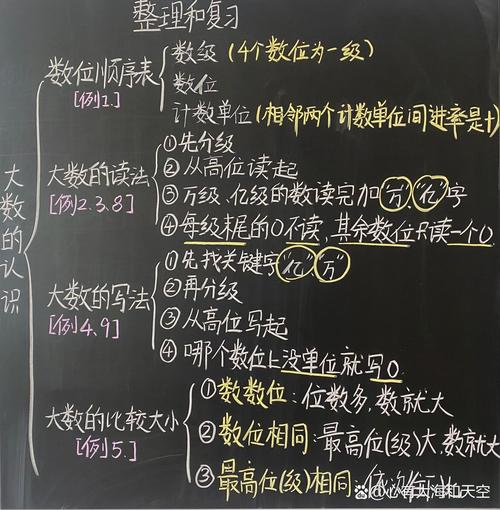 整理和复习
大数的认识
数位顺序表
[例1.]
数级(4个数位为一级)
数位
计数单位(相邻两个计数单位间进率是十)
大数的读法
[例2.3.8]
①先分级
②从高位读起
③万级、亿级的数读完加"万","亿"字
④每级末尾的0不读,其余数位只读一个0
大数的写法
[例4.9]
①先找关键字"亿""万"
②再分级
③从高位写起
④哪个数位上没单位就写0.
大数的比较大小
[例5.]
①数数位:位数多,数就大
②数位相同:最高位(级)大,数就大
③最高位(级)相同:
@心有大海和天空